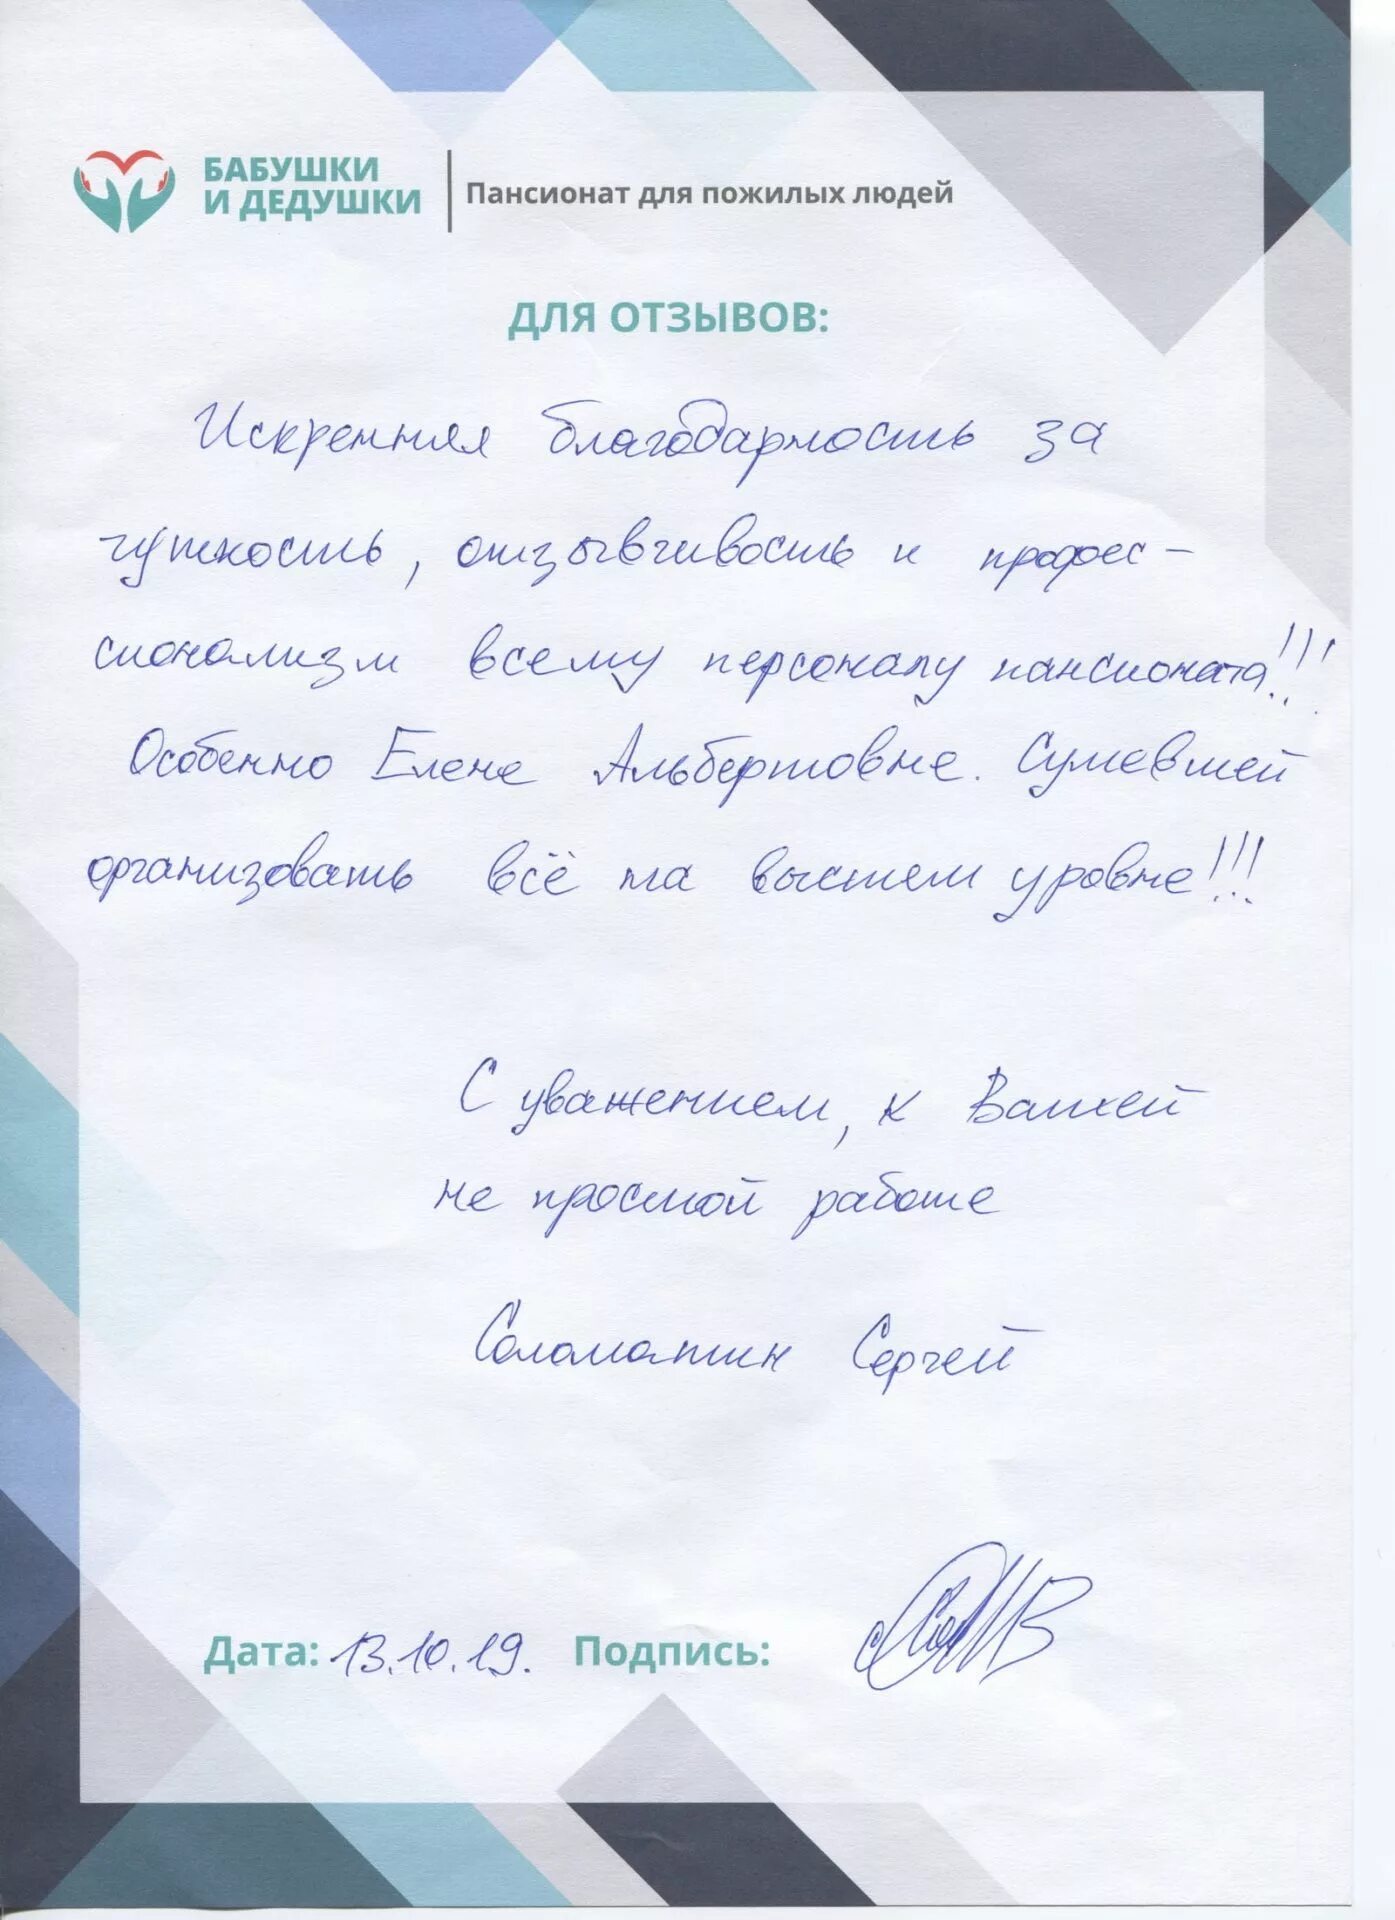 БАБУШКИ
И ДЕДУШКИ
Пансионат для пожилых людей
ДЛЯ ОТЗЫВОВ:
Искренняя благодарность за
чуткость, отзывчивость и профес-
сионализм всему персоналу пансионата!!!
Особенно Елене Альбертовне. Сумевшей
организовать всё на высшем уровне!!!
С уважением, к Вашей
не простой работе
Соломатин Сергей
Дата: 13.10.19. Подпись: